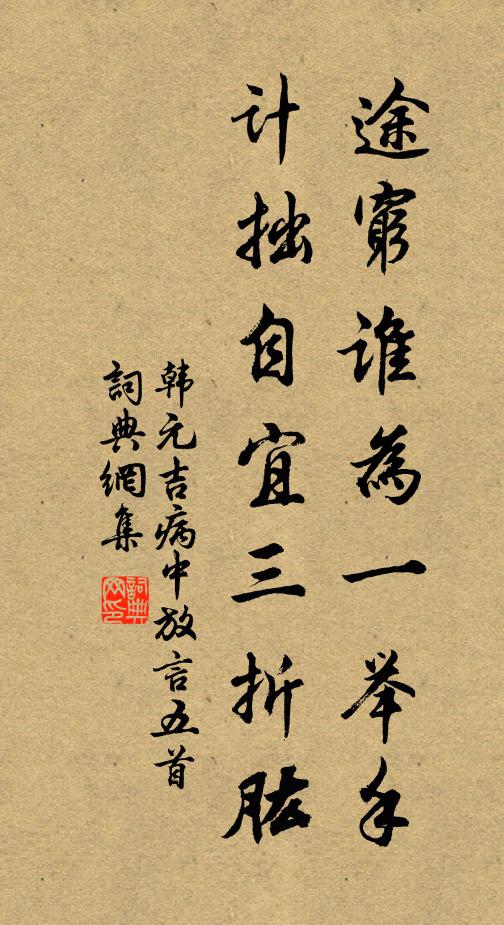 途窮谁為一举手
计拙自宜三折肱
韩元吉病中放言五首
詞典網集
詞典网印